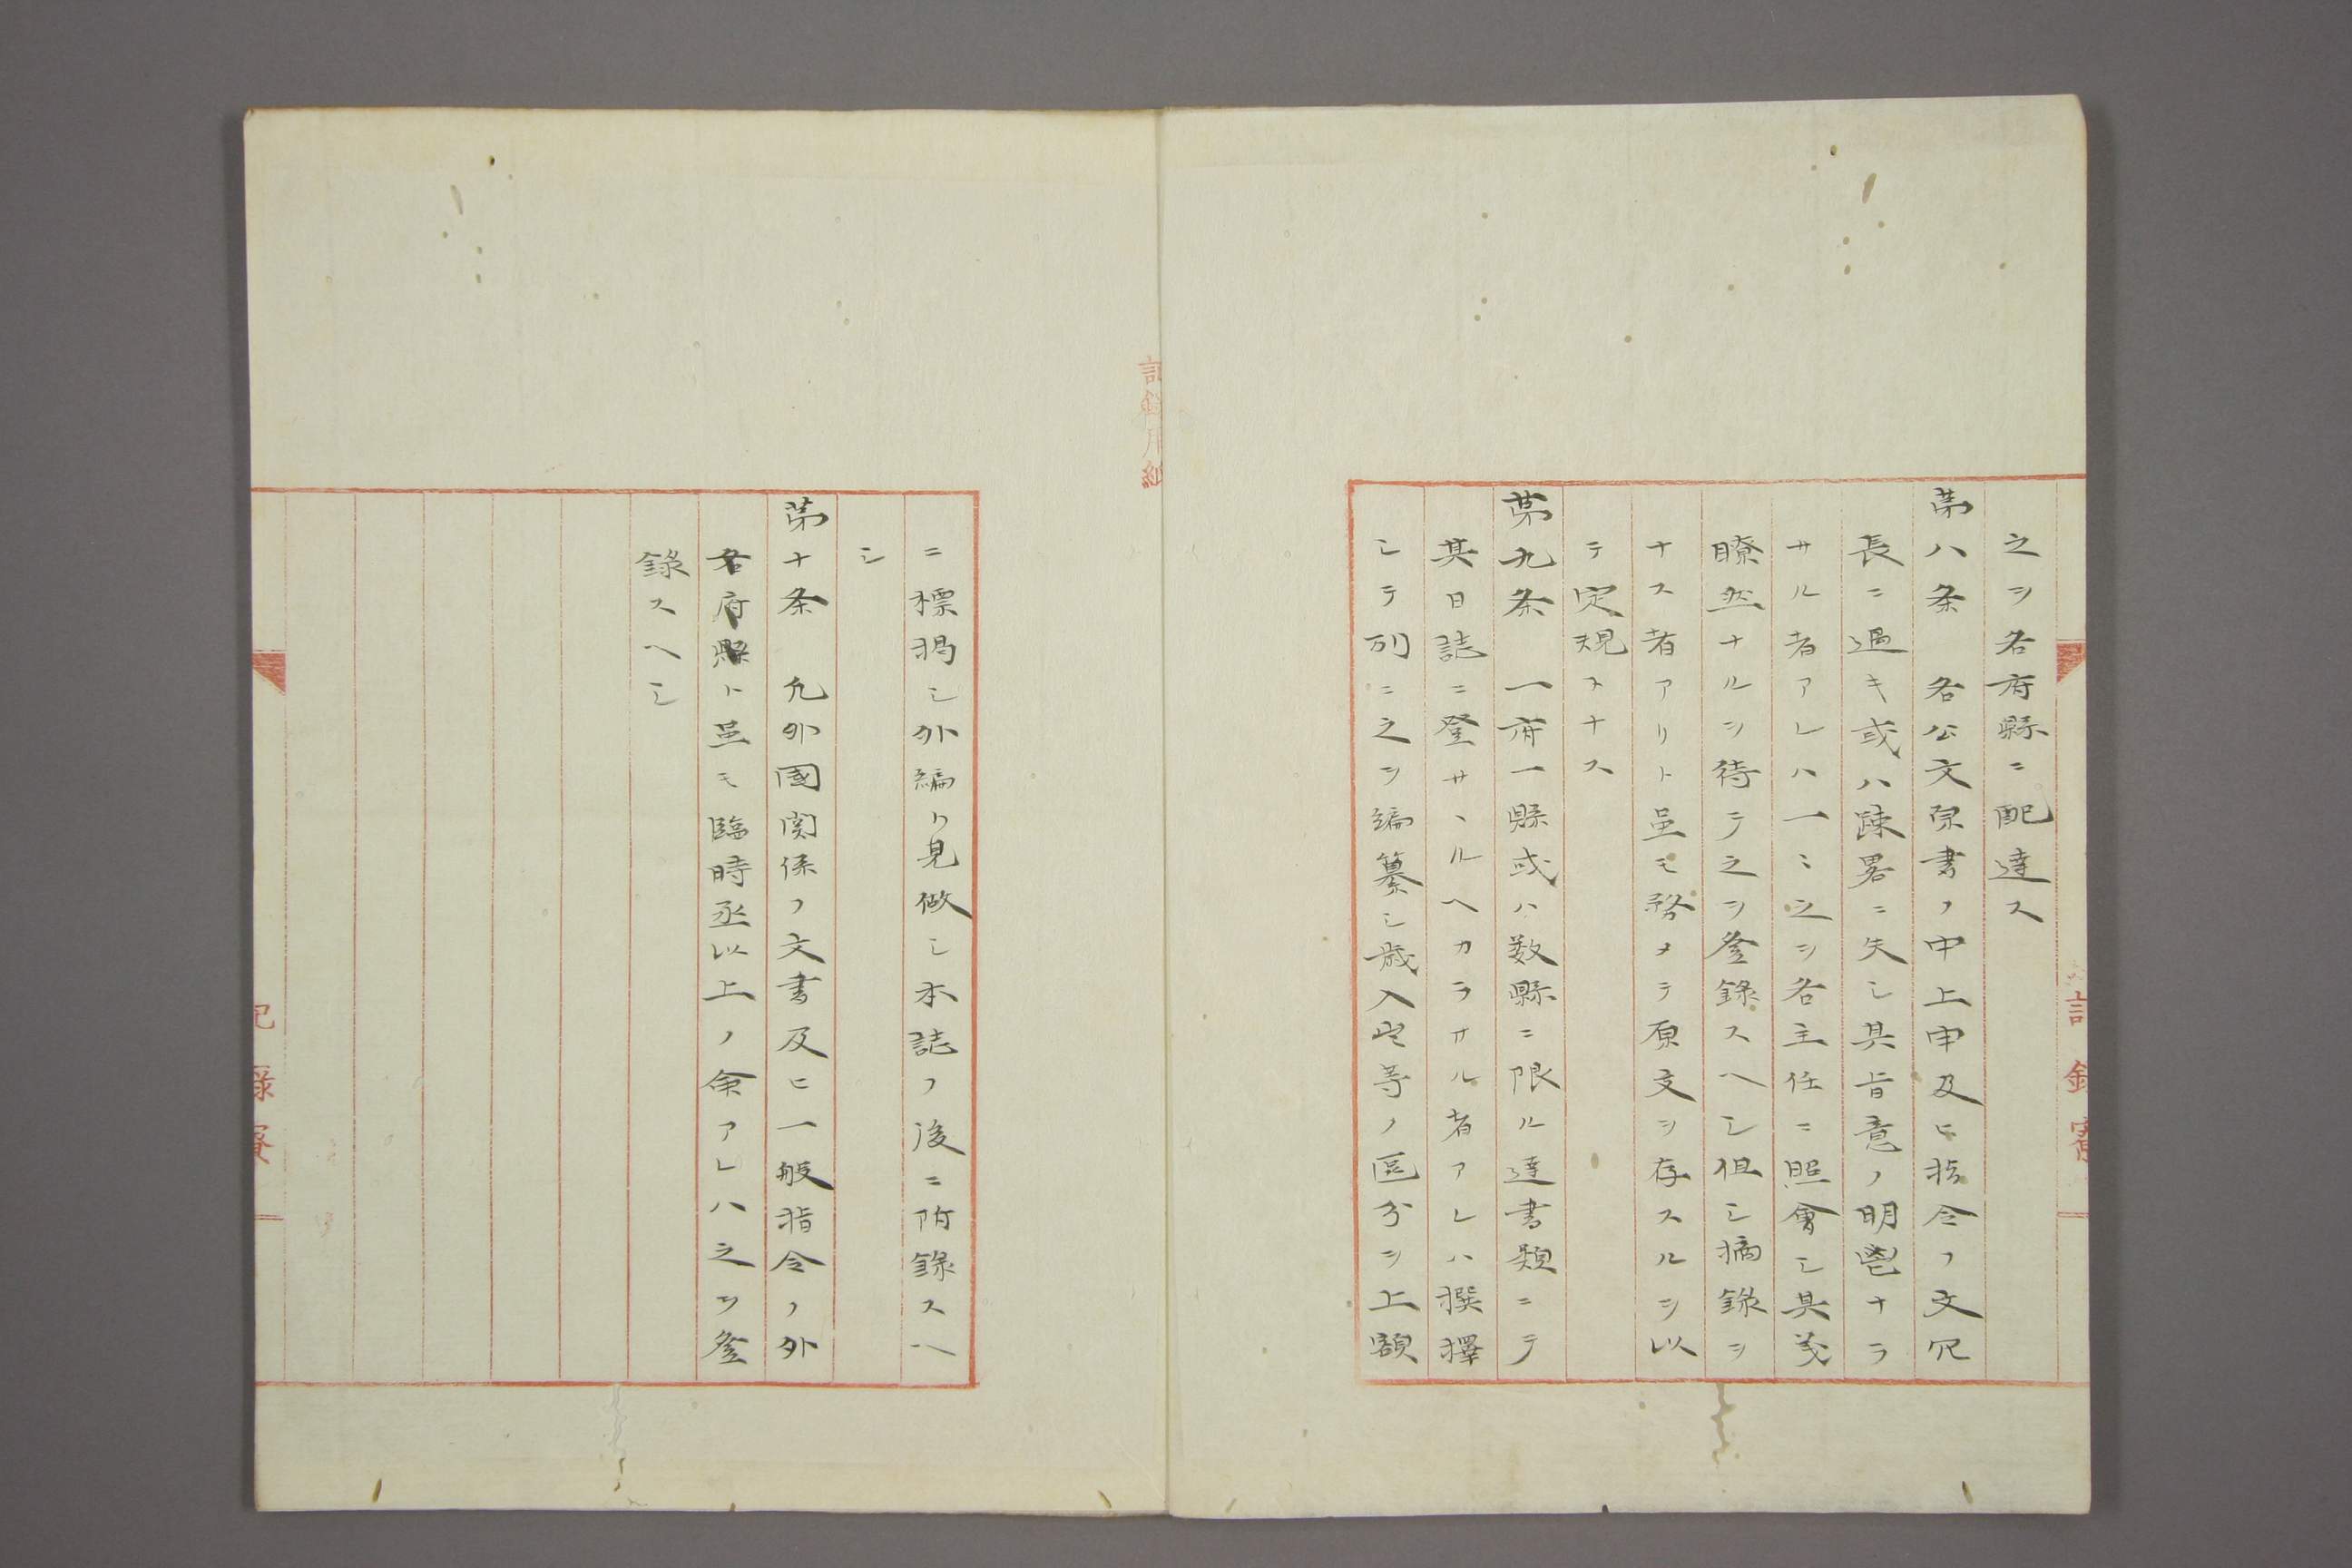 之ヲ各府縣ニ配達ス
第八条　各公文原書ノ中上申及ヒ指令ノ文冗
長ニ過キ或ハ踈畧ニ失シ其旨意ノ明鬯ナラ
サル者アレハ一ミ之ヲ各主任ニ照會シ其義
瞭然ナルヲ待テ之ヲ登録スヘシ但シ摘錄ヲ
ナス者アリト虽モ務メテ原文ヲ存スルヲ以
テ定規トナス
第九条　一府一縣或ハ数縣ニ限ル達書類ニテ
其日誌ニ登サヽルヘカラサル者アレハ撰擇
シテ別ニ之ヲ編纂シ歳入出等ノ區分ヲ上額
ニ標掲シ外編ト見做シ本誌ノ後ニ附錄スヘ
シ
第十条　凡外國関係ノ文書及ヒ一般指令ノ外
各府縣ト虽モ臨時丞以上ノ命アレハ之ヲ登
錄スヘシ
記錄用紙
記錄寮
記錄寮